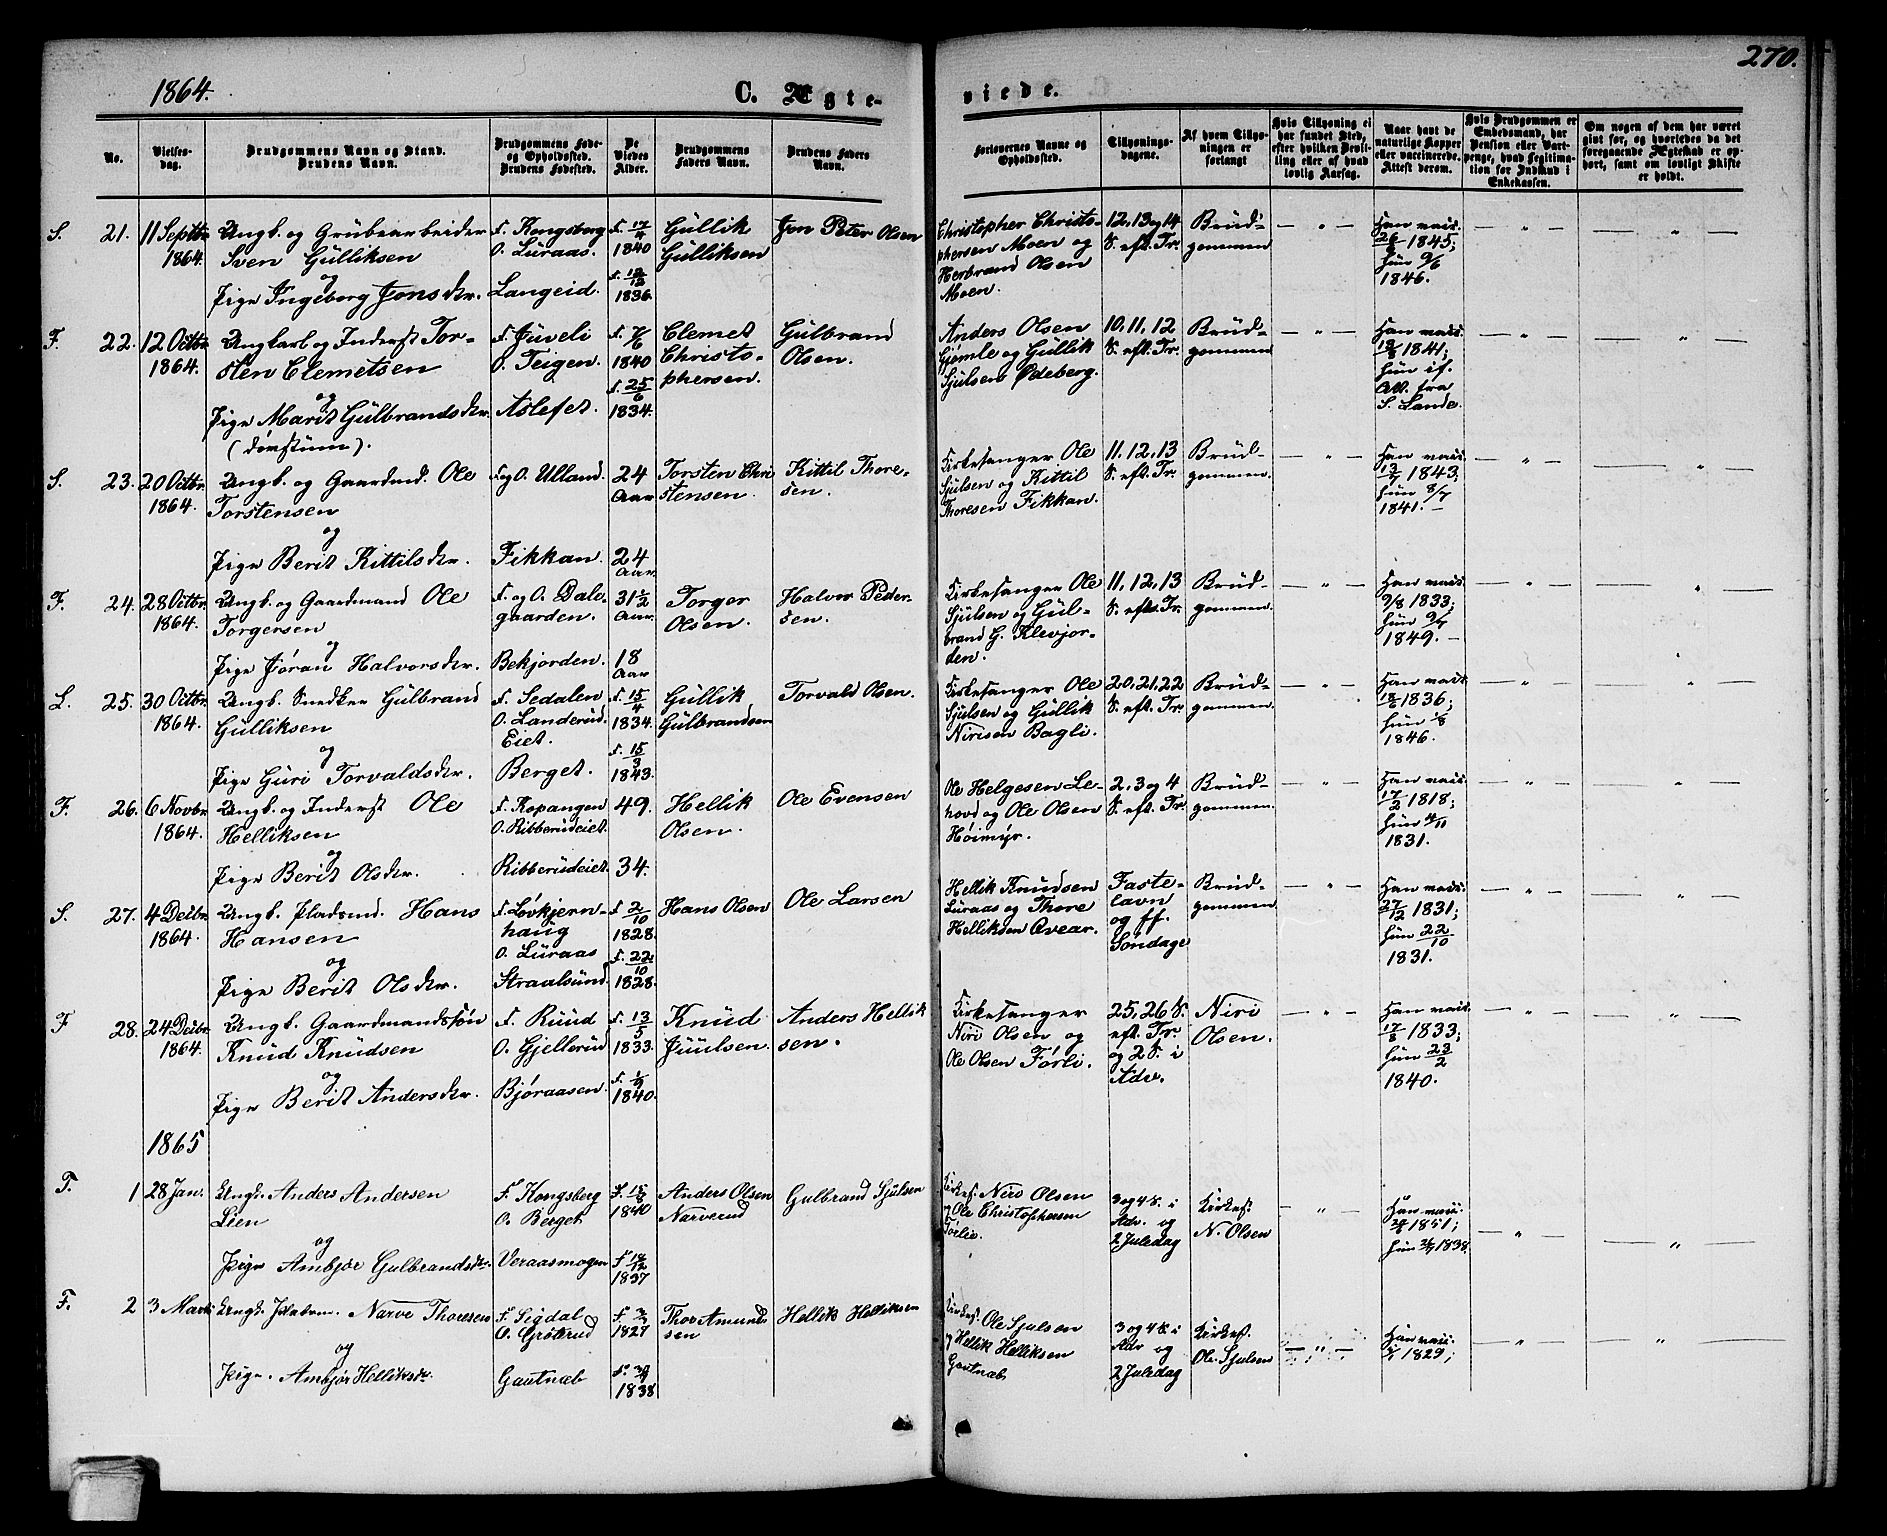 1864.
C. Ægte-
No.
Vielses-
dag.
Brudgommens Navn og Stand.
Brudens Navn.
Brudgommens Føde-
og Opholdssted.
Brudens Fødested.
De
Viedes
Alder.
Brudgommens
Faders Navn.
Brudens Faders
Navn.
S. 21. 11 Septbr 1864. Ungk. og Grubearbeider Sven Gulliksen
og
Pige Ingeborg Jonsdtr.
F. Kongsberg
O. Luraas.
Langeid.
F. 17/4 1840
F. 12/12 1836.
Gullik Gulliksen
Jon Peter Olsen
F. 22. 12 Octbr 1864. Ungkarl og Inderst Tor-
sten Clemetsen
og
Pige Marit Gulbrandsdtr.
(døvstum).
F. Juveli
O. Teigen.
Aslefet.
1840
F. 25/6 1834.
Clemet
Christo-
phersen.
Gulbrand
Olsen.
S. 23. 20 Octbr. 1864. Ungk. og Gaardmd. Ole
Torstensen
og
Pige Berit Kittilsdtr.
F. og O. Ulland.
Fikkan.
24 Aar
24 Aar
Torsten Chri
stensen.
Kittil Thore-
sen.
F. 24. 28 Octbr. 1864. Ungk. og Gaardmand Ole
Torgersen
og
Pige Jøran Halvorsdtr.
F. og O. Dale-
gaarden.
Bekjorden.
31 1/2 Aar.
18 Aar
Torger
Olsen.
Halvor Peder-
sen.
L. 25. 30 Octbr. 1864. Ungk. Snedker Gulbrand
Gulliksen
og
Pige Guri Torvaldsdtr.
F. Sedalen
O. Landerud.
Eiet.
Berget.
F. 15/4 1834.
F. 15/3 1843.
Gullik
Gulbrandsen
Torvald Olsen.
F. 26. 6 Novbr. 1864. Ungk. og Inderst Ole
Helliksen
og
Pige Berit Olsdtr.
F. Kopangen
O. Ribberudeiet.
Ribberudeiet.
49.
34.
Hellik
Olsen.
Ole Evensen
S. 27. 4 Decbr. 1864. Ungk. Pladsmd. Hans
Hansen
og
Pige Berit Olsdtr.
F. Løvkjern-
haug
O. Luraas
Straalsund.
F. 2/10 1828.
F. 22/10 1828.
Hans Olsen
Ole Larsen
F 28. 24 Decbr. 1864. Ungk. Gaardmandssøn
Knud Knudsen
og
Pige Berit Andersdtr.
F. Ruud
O. Gjellerud
Bjøraasen.
F. 13/5 1833.
F. 1/9 1840.
Knud
Juulsen.
Anders Hellik
sen.
1865
F. 1 28 Jan. Ungk. Anders Andersen
Lien
og
Pige Ambjør Gulbrandsdtr.
F. Kongsberg
O. Berget
Veraasmogen
F. 15/8 1840
F. 18/12 1837
Anders Olsen
Narverud
Gulbrand Sjulsen
F. 2 3 Marts Ungk. Narve Thoresen
og
Pige. Ambjør Helliksdtr.
F. Sigdal
O. Grøterud
Gautnæb
1827
1838
Thor Amund
sen
Hellik Helliksen
270.
viede.
Forlovernes Navne og
Opholdssted.
Tillysnings-
dagene.
Af hvem Tillys-
ningen er
forlangt
Hvis Tillysning ei
har fundet Sted,
efter hvilken Bevil-
ling eller af hvad
lovlig Aarsag.
Naar havt de
naturlige Kopper
eller vaccinerede.
Attest derom.
Hvis Brudgommen er
Embedsmand, har
Pension eller Vart-
penge, hvad Legitima-
tion for Indskud i
Enkekassen.
Om nogen af dem har været
gift før, og hvorledes da det
foregaaende Ægteskab er op-
hørt, samt om lovligt Skifte
er holdt.
Christopher Christo-
phersen Moen og
Herbrand Olsen
Moen.
12, 13 og 14
S. eft. Tr.
Brud-
gommen
Han vacc.
26/6 1845;
hun 9/6
1846.
Anders Olsen
Gjømle og Gullik
Sjulsens Ødeberg.
10, 11, 12
S. eft. Tr.
Brud-
gommen
Han vacc.
13/8 1841;
hun if.
Att. fra
S. Lande.
Kirkesanger Ole
Sjulsen og Kittil
Thoresen Fikkan.
11. 12. 13
S. eft. Tr.
Brud-
gommen.
Han vacc.
13/7 1843;
hun 8/7
1841.
Kirkesanger Ole
Sjulsen og Gul-
brand G. Klevjor-
den.
11, 12, 13
S. eft. Tr.
Brud-
gommen.
Han vacc.
9/8 1833;
hun 9/7
1849.
Kirkesanger Ole
Sjulsen og Gullik
Nirisen Bagli.
20, 21, 22
S. eft. Tr.
Brud-
gommen.
Han vacc.
1836;
hun
1846.
Ole Helgesen Le-
hovd og Ole Olsen
Høimyr.
2, 3 og 4
S. eft. Tr.
Brud-
gommen.
Han vacc.
17/2 1818;
hun 4/11
1831.
Hellik Knudsen
Luraas og Thore
Helliksen Avear.
Faste-
lavn
og ff.
Søndage
Brud-
gommen.
Han vacc.
27/12 1831;
hun 22/10
1831.
Kirkesanger
Niri Olsen og
Ole Olsen Førli.
25, 26 S.
eft. Tr.
og 2 S. i
Adv.
Niri
Olsen.
Han vacc.
17/8 1833;
hun 23/2
1840.
Kirkes. Niri Olsen
Ole Christophersen
Førlie.
3 og 4 S. i
Adv. og
2 Juledag
Kirkes.
N. Olsen
Han vacc.
1851;
hun 1838.
Kirkes. Ole Sjulsen
Hellik Helliksen
Gautnæb
3 og 4 S. i
Adv og
2 Juledag
Kirkes.
Ole Sjulsen
Han vacc.
1829;